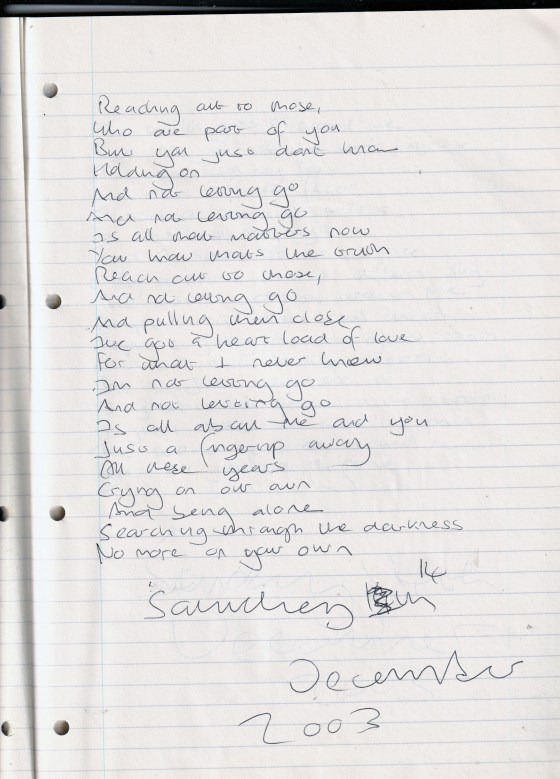 Reaching out to those,
Who are part of you
But you just dont know
Holding on
And not letting go
And not letting go
Is all that matters now
You know thats the truth
Reach out to those,
And not letting go
And pulling them close
Ive got a heart load of love
For what I never knew
Im not letting go
And not letting go
Is all about me and you
Just a fingertip away
All these years
Crying on our own
And being alone
Searching through the darkness
No more on your own
14
Saturday
December
2003